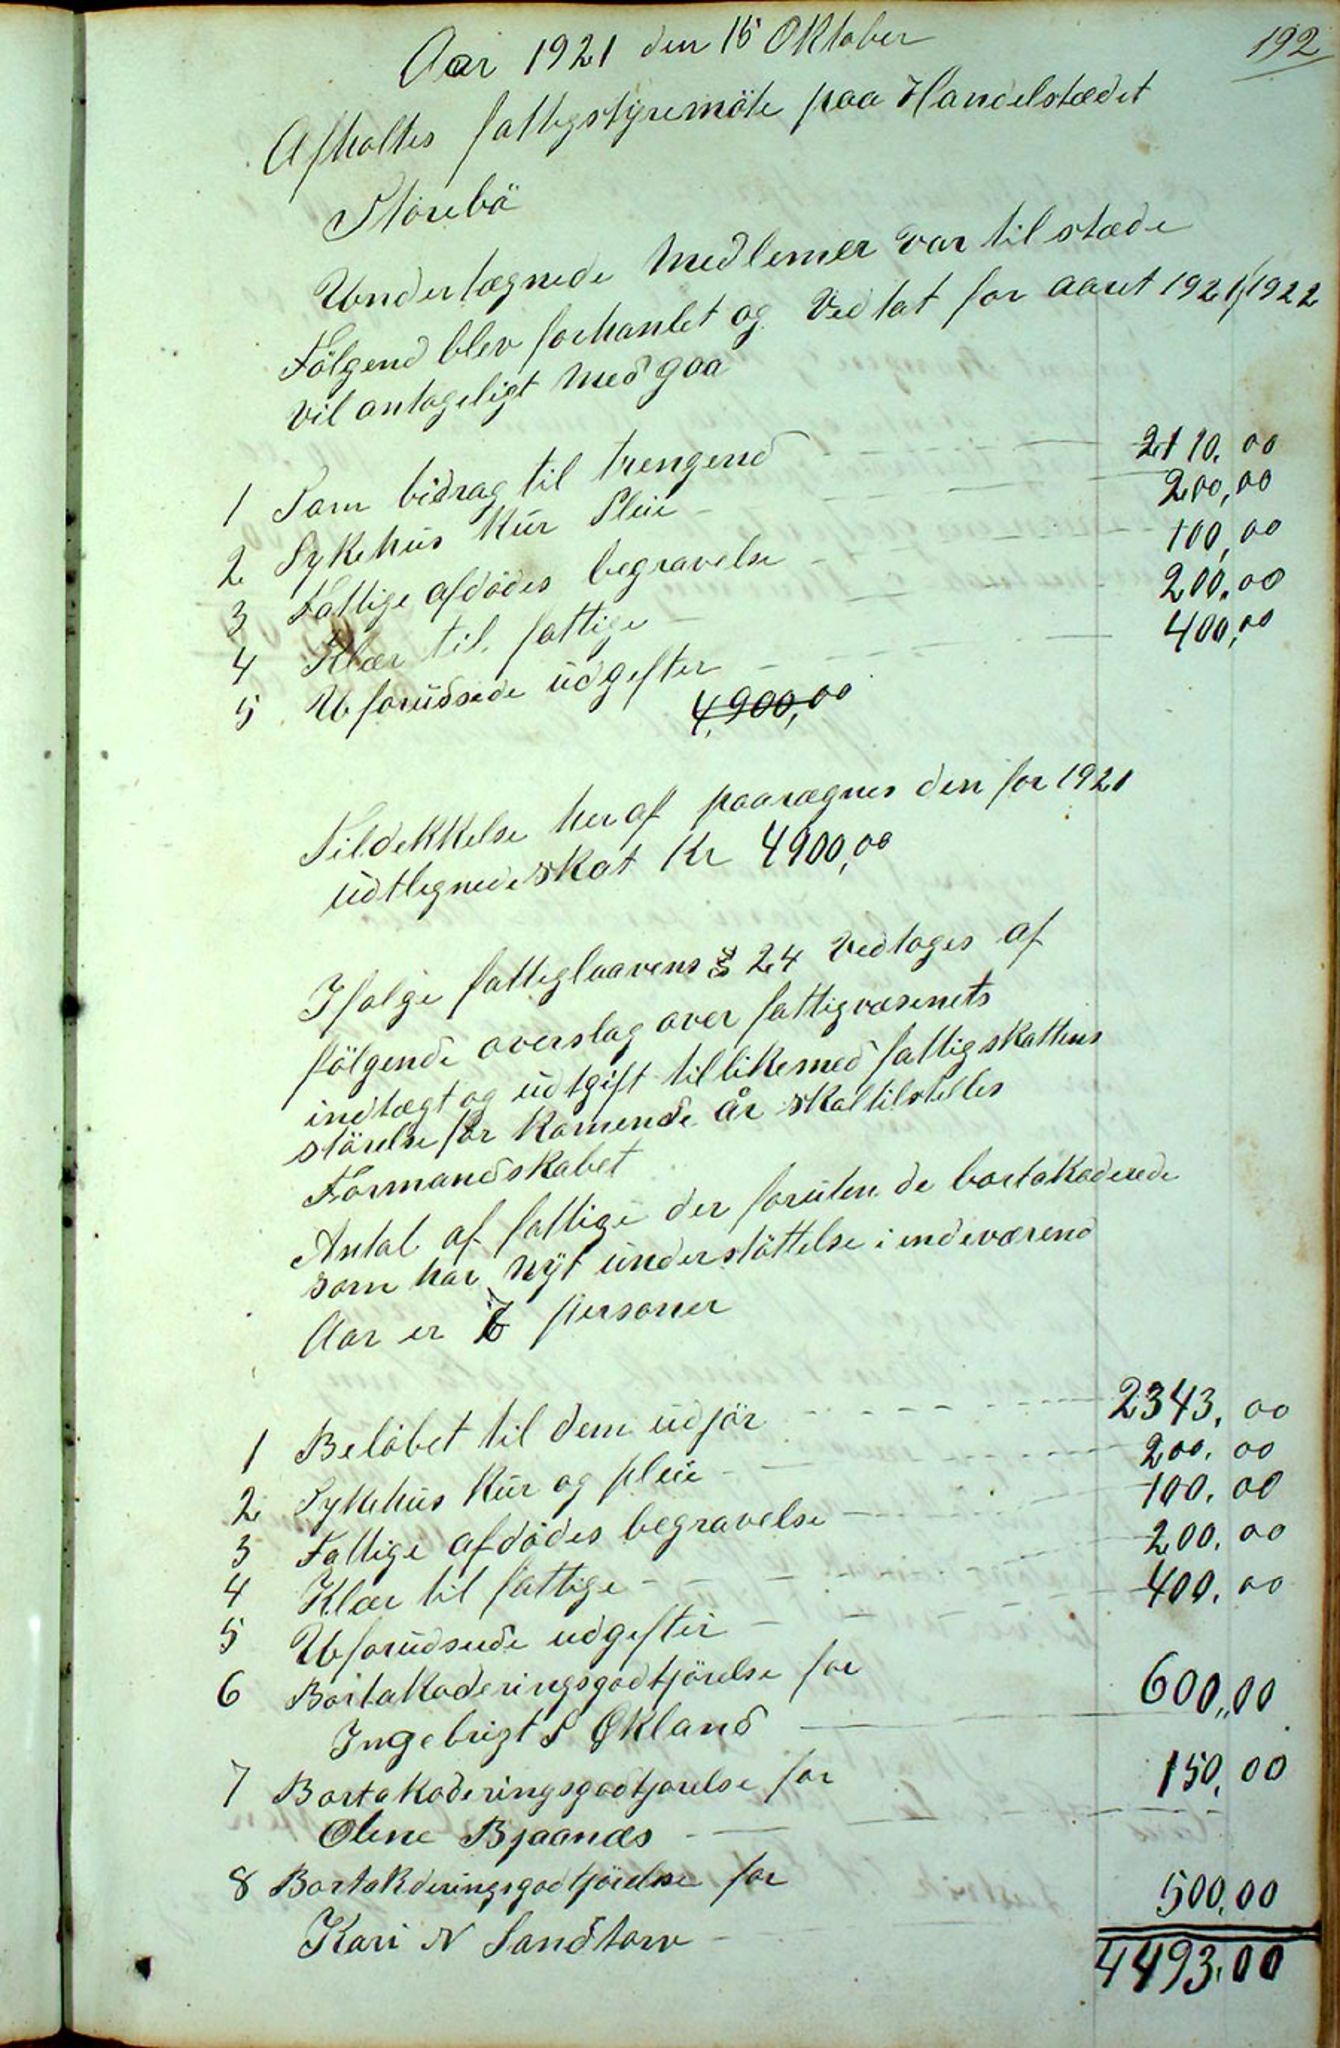 192
Aar 1921 den 15 Oktober
Afholtes fattigstyremöte paa Handelstædet
Störebö
Undertægnede Medlemer var tilstæde
Fölgend blev forhanlet og Vedtat for aaret 1921/1922
vil antageligt Medgaa
1 Som bidrag til trengend 2110.00
2 Sykehus Kur Pleie 200,00
3 Fattige afdödes begravelse 100,00
4 Klær til fattige 200.00
5 Uforudsede udgefter 400,00
4,900,00
Tildekkelse heraf paarægnes den for 1921
udtlegnede skat Kr 4900,00
Ifølge fattiglaavens § 24 Vedtages af
fölgende overslag over fattigvæsenets
indtægt og udtgift tillikemed fattigskattens
störelse for Komende år skal tilstilles
Formandskabet
Antal af fattige der foruten de bortakoderede
som har Nyt understöttelse i endeværend
Aar er personer
1 Belöbet til dem udjör 2343.00
2 Sykehus Kur og pleie 200.00
3 Fattige afdödes begravelse 100.00
4 Klær til fattige 200.00
5 Uforudsede udgefter 400.00
6 Bortakoderingsgodtjörelse for
Ingebrigt S Økland 600,00
7 Bortakoderingsgodtjorelse for 150.00
Oline Bjaanæs
8 Bortakderingsgodtjörelse for
Kari N Sandtorv 500.00
4493.00